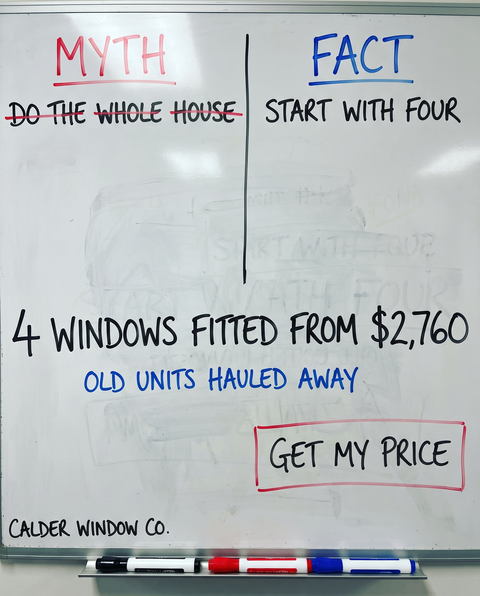 MYTH
FACT
DO THE WHOLE HOUSE
START WITH FOUR
START WITH FOUR
4 WINDOWS FITTED FROM $2,760
OLD UNITS HAULED AWAY
GET MY PRICE
CALDER WINDOW CO.